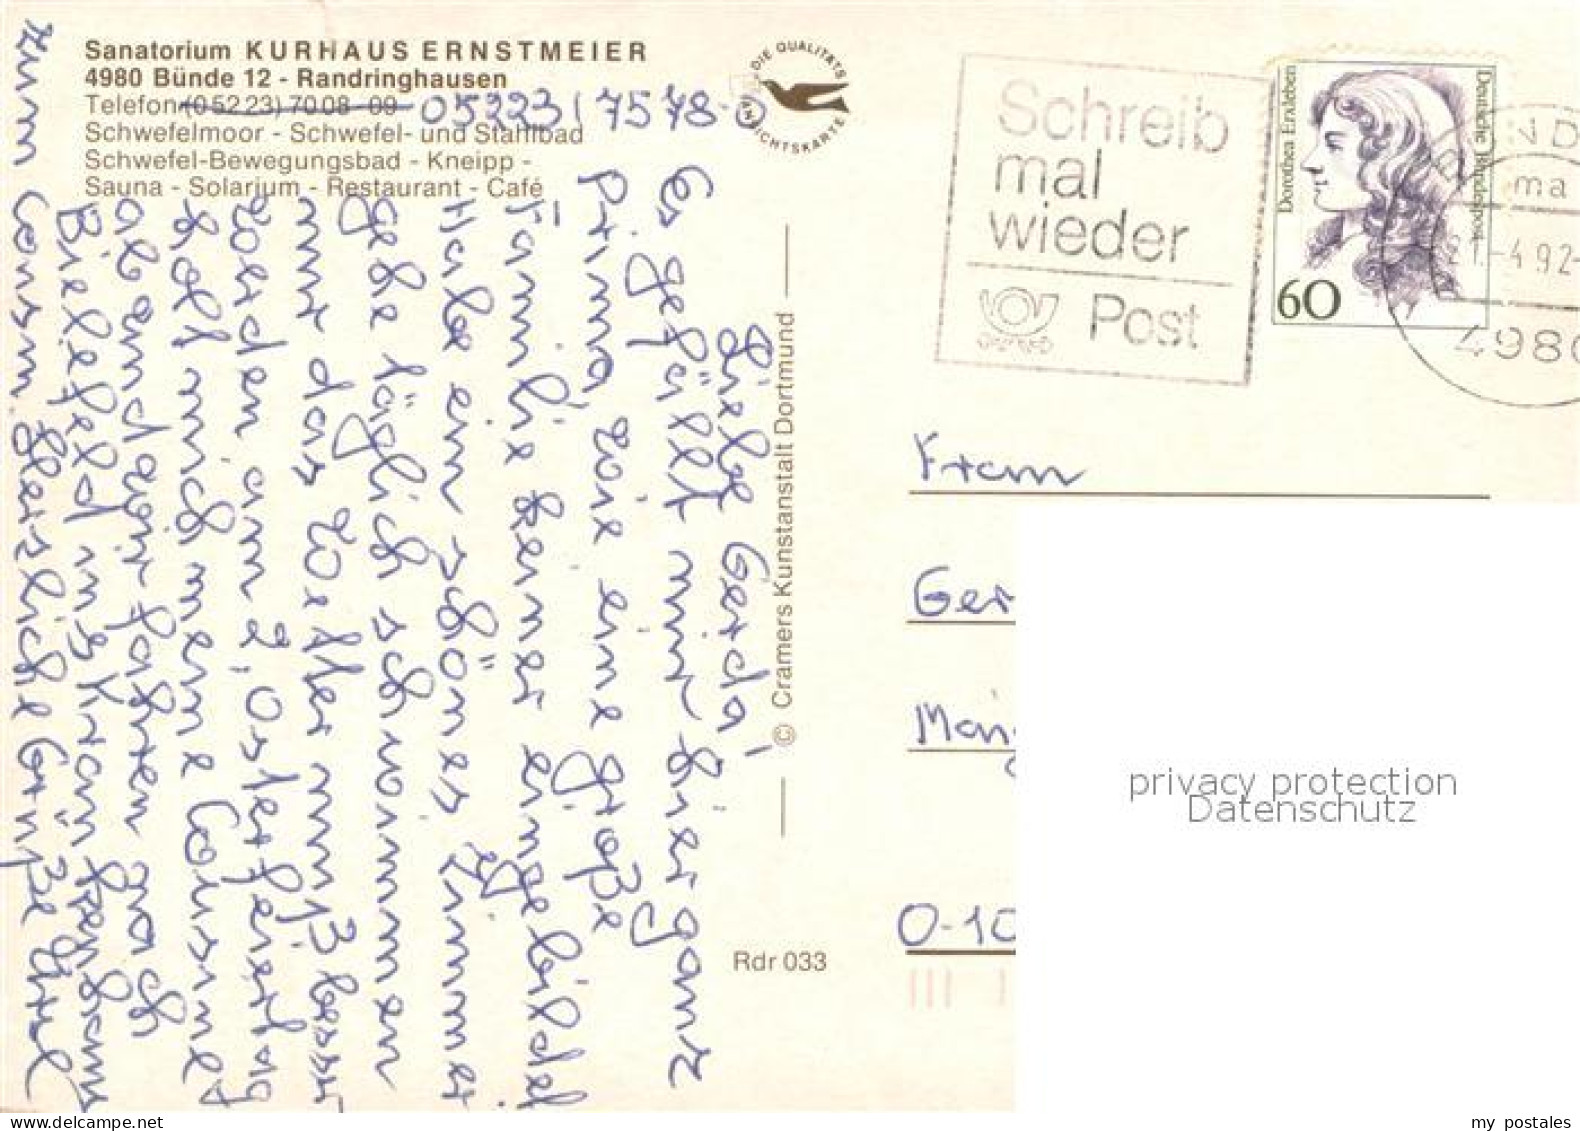 Sanatorium KURHAUS ERNSTMEIER
4980 Bünde 12 - Randringhausen
Telefon (05223) 7008-09 05223 / 7578-0
Schwefelmoor - Schwefel- und Stahlbad
Schwefel-Bewegungsbad - Kneipp -
Sauna - Solarium - Restaurant - Café
DIE QUALITÄTS
ANSICHTSKARTE
Liebe Gerda!
Es gefällt mir hier ganz
prima, wie eine große
Familie keiner eingebildet
Habe ein schönes Zimmer
gehe täglich schwimmen
nur das Wetter muß besser
werden, am 2. Osterfeiertag
holt mich meine Cousine
ab und wir fahren nach
Bielefeld ins Krankenhaus
zum Cousin. Herzliche Grüße
© Cramers Kunstanstalt Dortmund
Rdr 033
Schreib
mal
wieder
Post
Dorothea Erxleben
Deutsche Bundespost
60
ma
21.-4.92-
4980
Frau
Ger
O-10
privacy protection
Datenschutz
my postales
www.delcampe.net